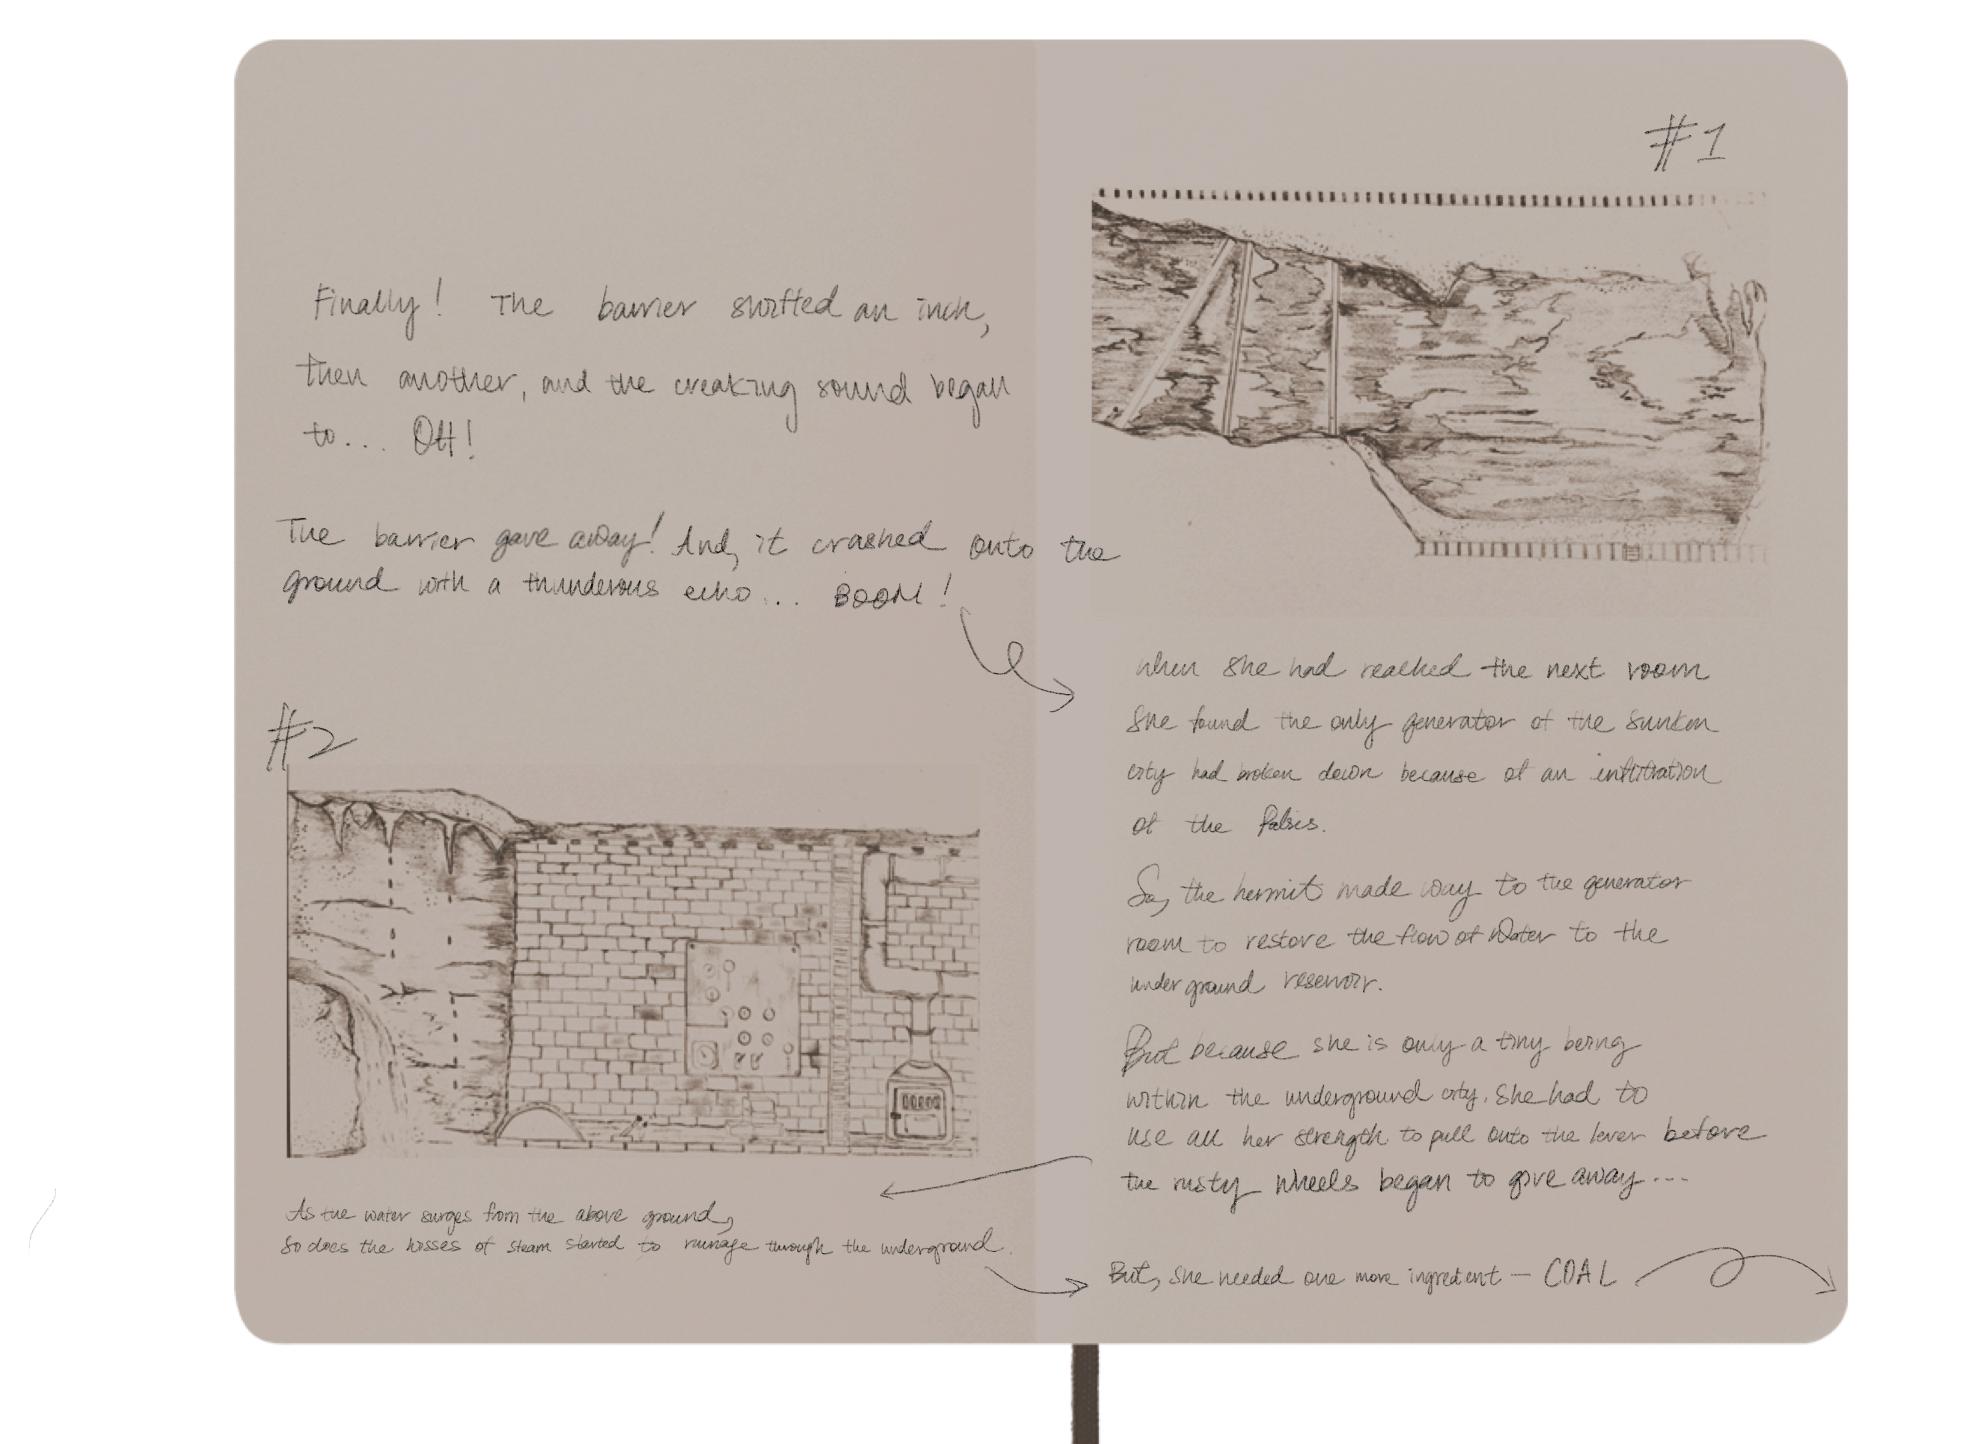 Finally! The barrier shifted an inch,
then another, and the creaking sound began
to... OH!
The barrier gave away! And, it crashed onto the
ground with a thunderous echo... BOOM!
#1
When she had reached the next room
She found the only generator of the sunken
city had broken down because of an infiltration
of the
So, the hermit made way to the generator
room to restore the flow of water to the
underground reservoir.
But because she is only a tiny being
within the underground city. She had to
use all her strength to pull onto the lever before
the rusty wheels began to give away...
#2
As the water surges from the above ground,
So does the hisses of steam started to through the underground.
But, she needed one more ingredient — COAL